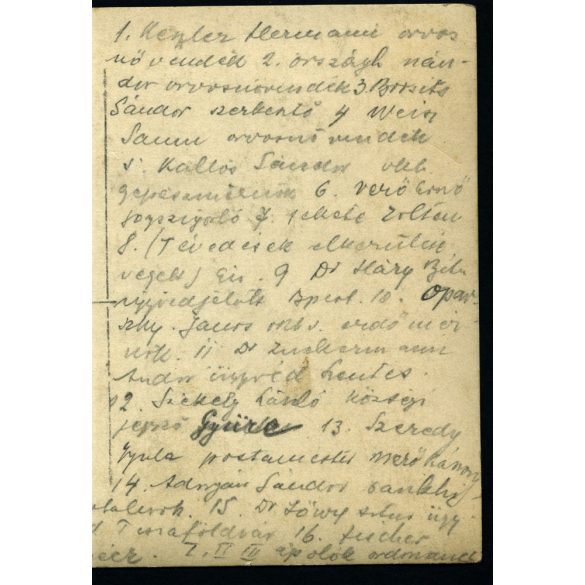 1. Kezler Hermann orvos
növendék 2. országh nán-
dor orvosnövendék 3 Brosits
Sándor szerkentő 4 Weisz
Samu orvosnövendék
5. Kallós Sándor okl.
gepészmérnök 6. verő Ernő
jogszigorló 7. fekete Zoltan
8. (Tévedések elkerülése
végett) Én. 9 Dr Háry Béla
ügyvédjelölt Bpest. 10. Opar-
szky János okl. erdőmér-
nök. 11 Dr Zuckermann
Andor ügyvéd Lentes.
12. Székely László községi
jegyző Györke 13. Szeredy
Gyula postamester
14. Adorján Sándor bankhi-
vatalnok. 15. Dr Lőwy ügy-
Tiszaföldvár 16. fischer
7. I II III ápolók